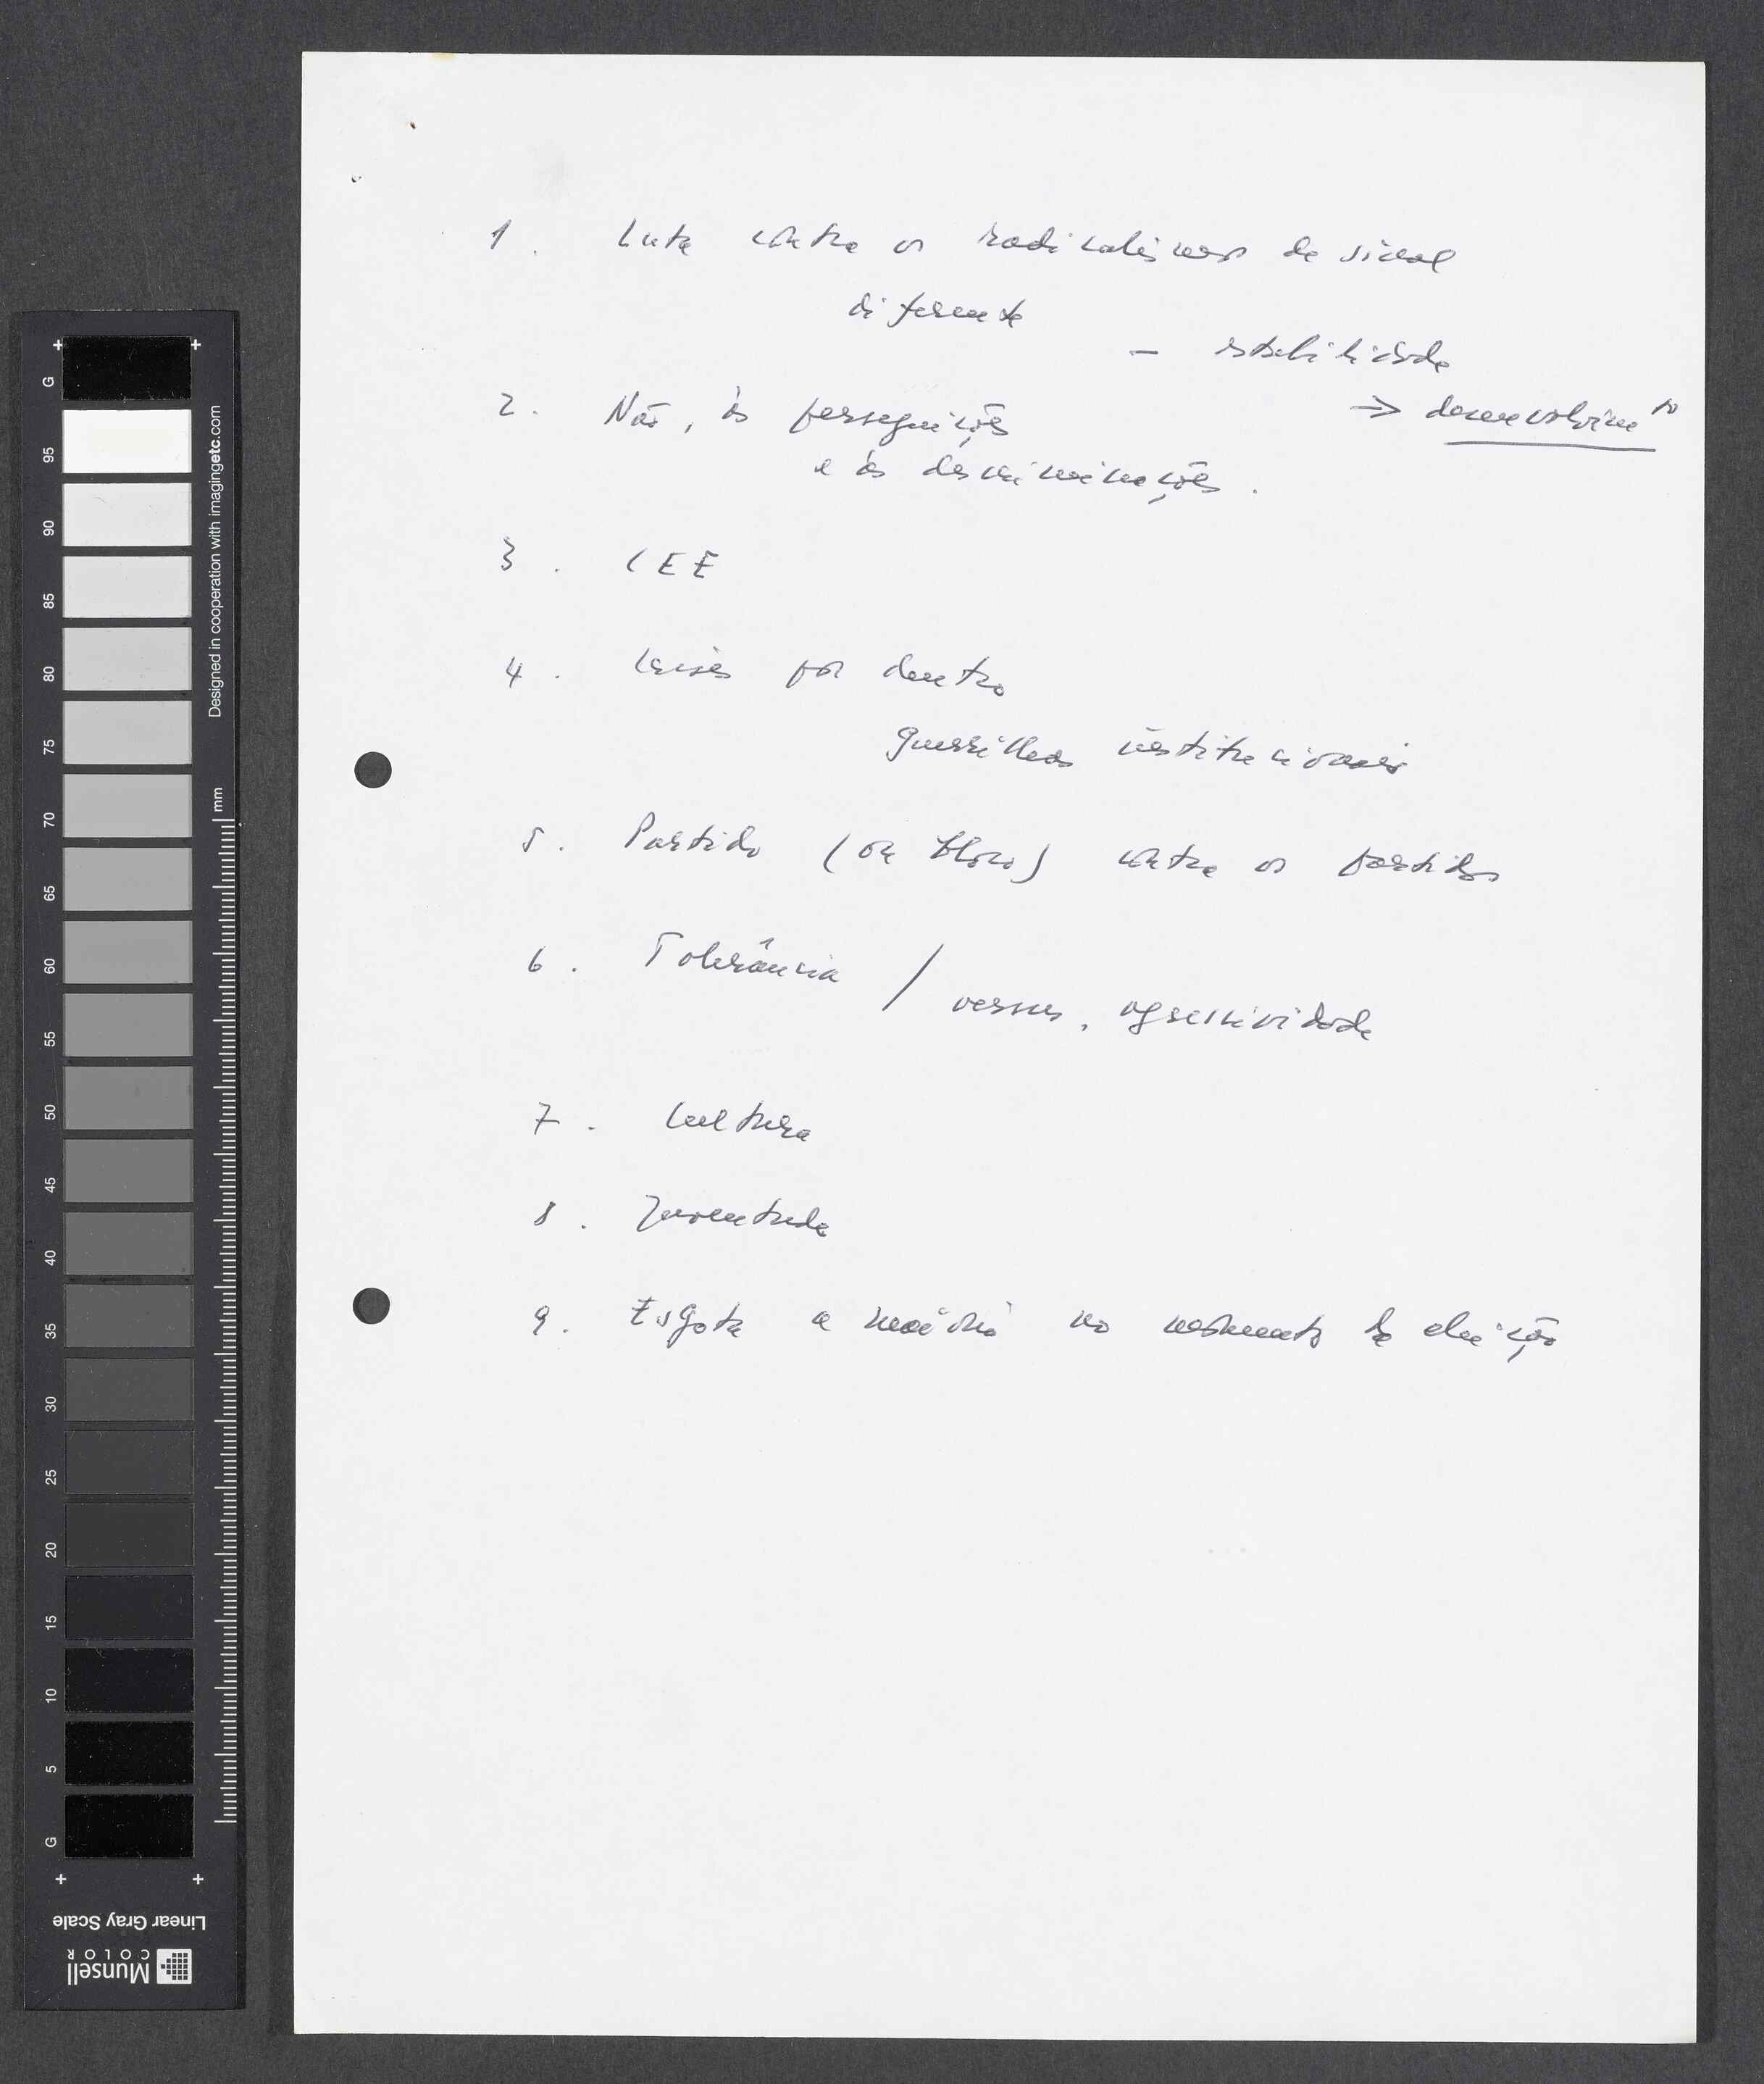 1. Luta contra os radicalismos de sinal
diferente
- estabilidade
=> desenvolvimto
2. Não, às perseguições
e às descriminações.
3. CEE
4. Crises por dentro
guerrilhas institucionais
5. Partido (ou bloco) contra os partidos
6. Tolerância / versus, agressividade
7. Cultura
8. Juventude
9. Esgota a maioria no momento da eleição
G
95
90
85
80
75
70
65
60
55
50
45
40
35
30
25
20
15
10
5
G
Designed in cooperation with imagingetc.com
mm
Linear Gray Scale
Munsell
COLOR